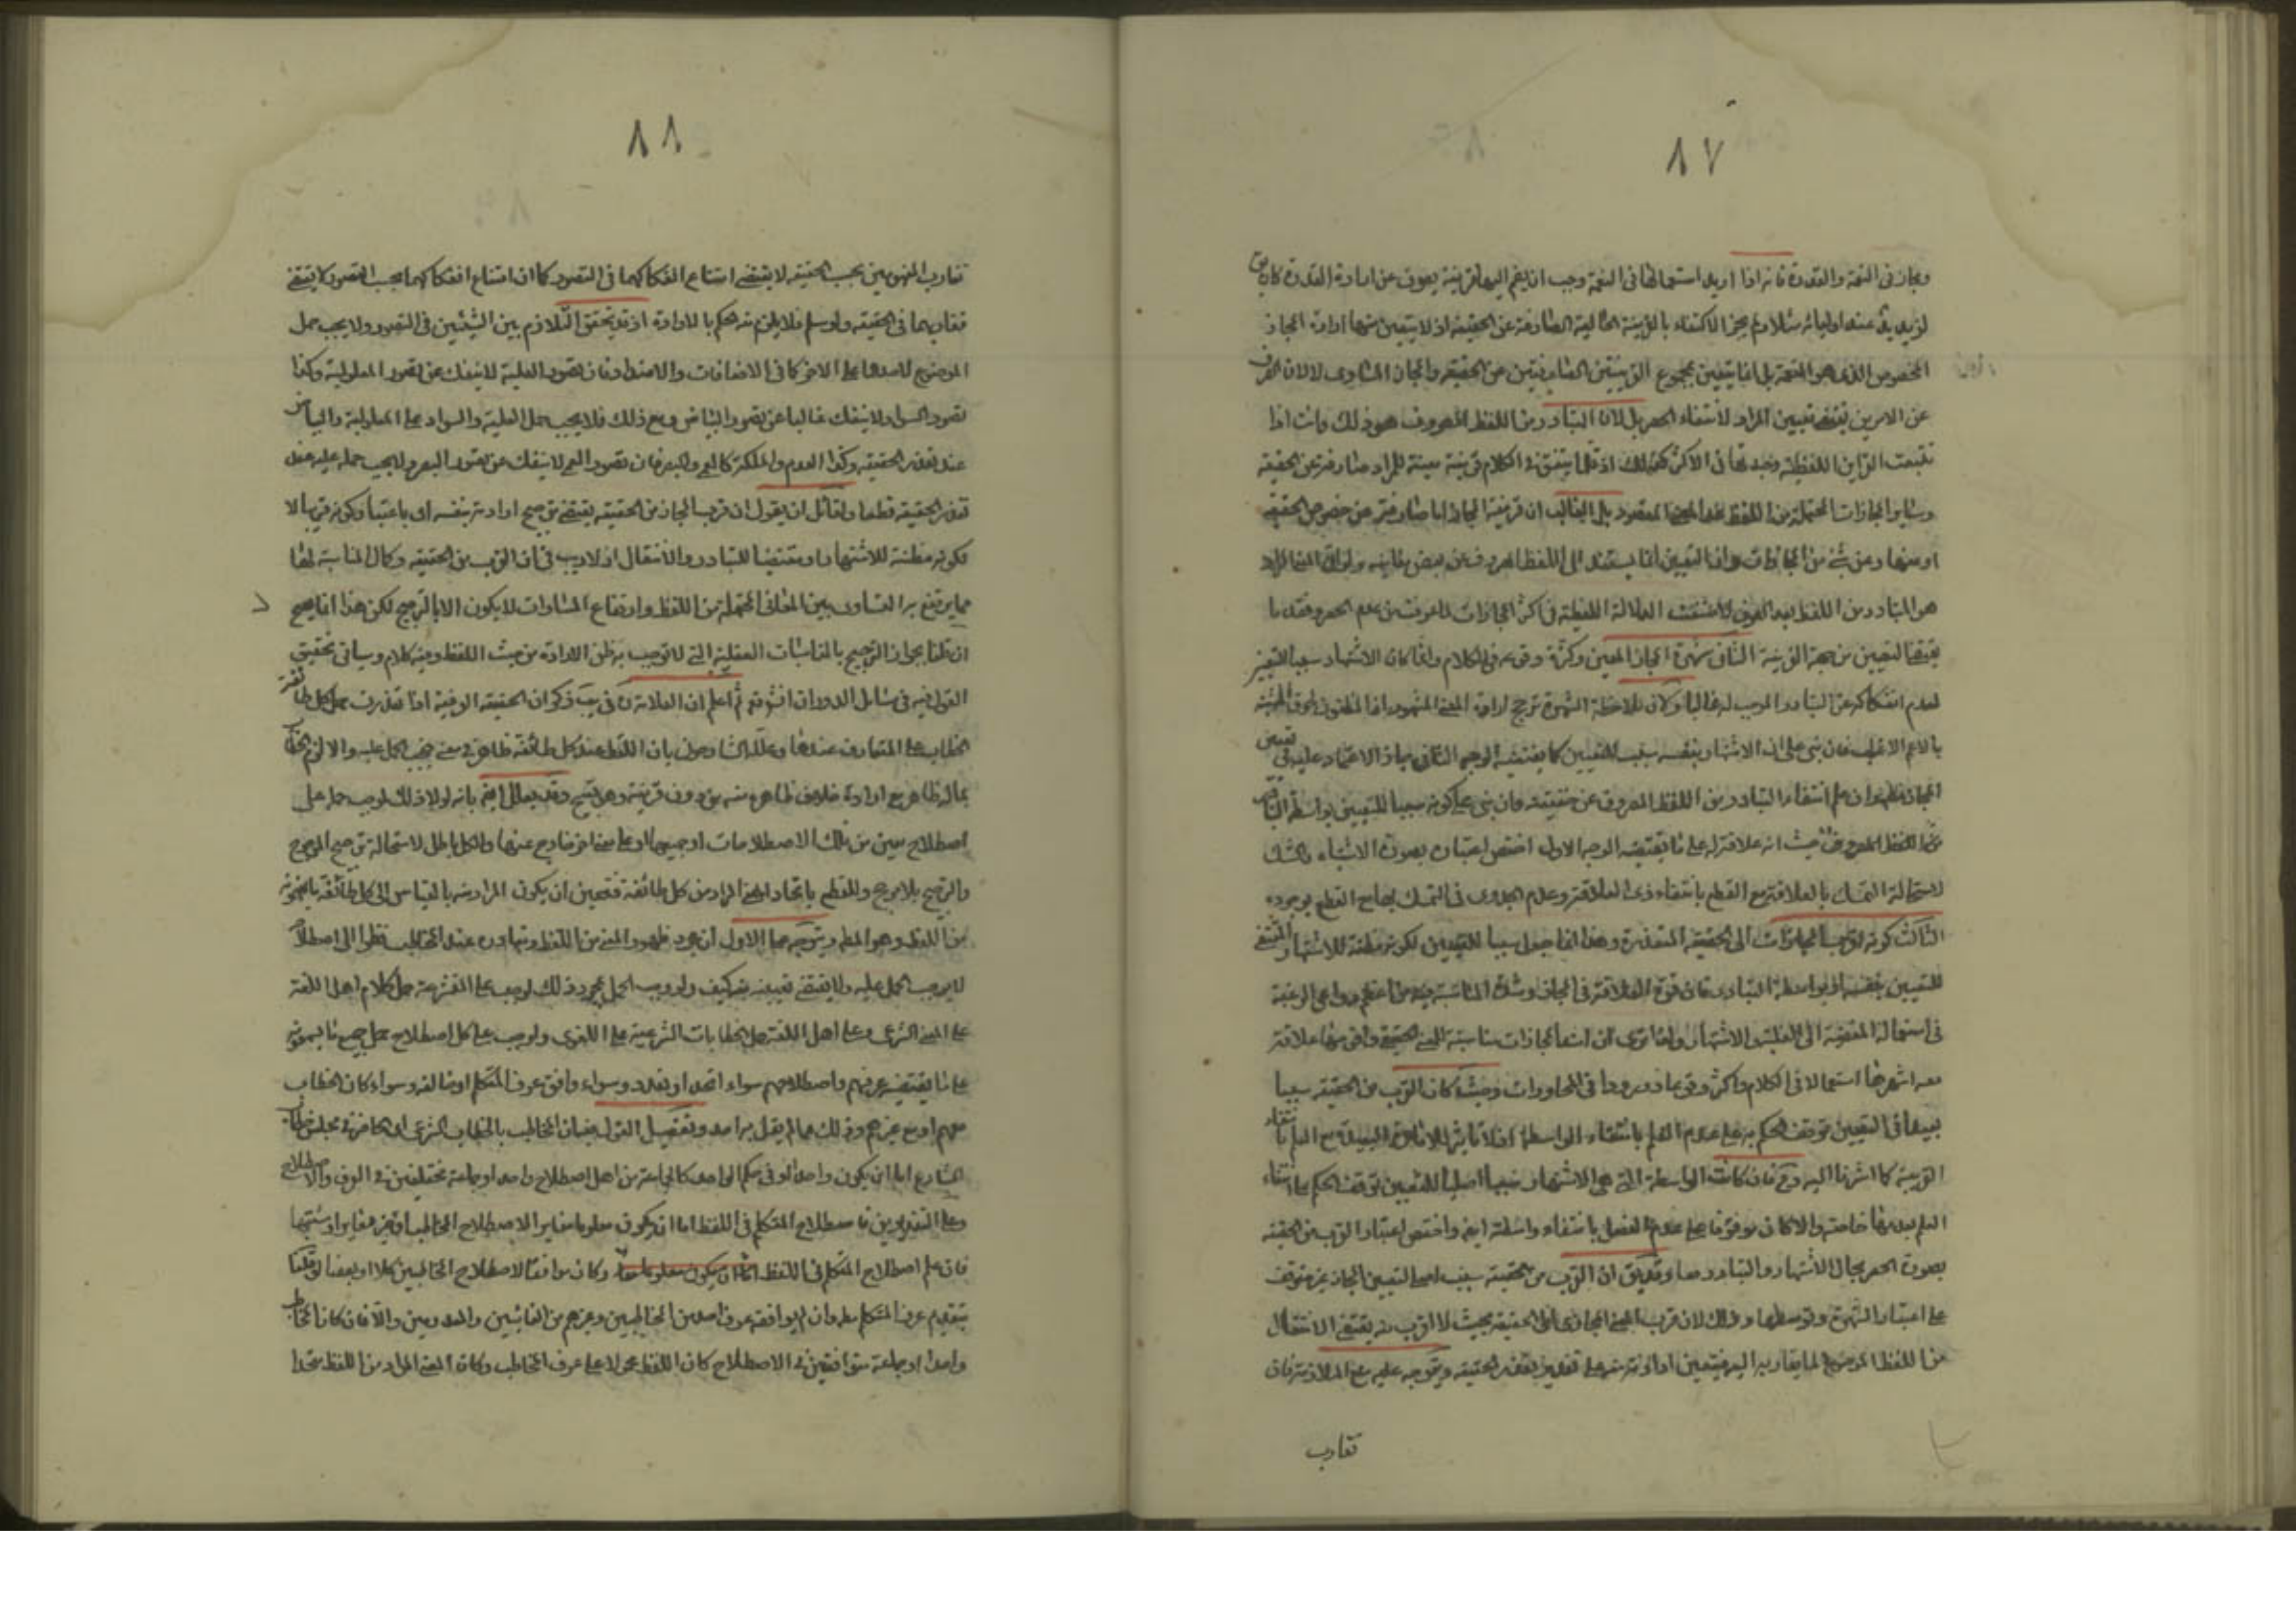 ٨٧
ومجاز في النعمة والقدرة فانه اذا اريد استعمالها في النعمة وجب ان ينضم اليها قرينة يصرف عن ارادة القدرة كان يق
لزيد يد عند اوليائه مثلا ولم يجز الاكتفاء بالقرينة الحالية الصارفة عن الحقيقة اذ لا يتعين منها ارادة المجاز
المخصوص الذي هو النعمة بل انما يتعين بمجموع القرينتين الصارفتين عن الحقيقة والمجاز المساوى لا لان الصرف
عن الامرين يقتضي تعيين المراد لانتفاء الحصر بل لان التبادر من اللفظ المصروف هو ذلك وانت اذا
تتبعت القراين اللفظية وجدتها في الاكثر كذلك اذ قلما يتفق في الكلام قرينة معينة للمراد صارفة عن الحقيقة
وساير المجازات المحتملة من اللفظ عدا المعنى المقصود بل الغالب ان قرينة المجاز اما صارفة عن خصوص الحقيقة
او منها وعن شئ من المجازات وانما التعيين انما يستند الى اللفظ المصروف عن بعض معانيه ولولا ان المعنى المراد
هو المتبادر من اللفظ بعد الصرف لانتفت الدلالة اللفظية في اكثر المجازات لما عرفت من عدم الحصر وفقد ما
يقتضي التعيين من جهة القرينة الثاني شهرة المجاز المعين وكثرة وقوعه في الكلام وانما كان الاشتهار سببا للتعيين
لعدم انفكاكه عن التبادر الموجب له غالبا ولان ملاحظة الشهرة ترجح ارادة المعنى المشهور اذا المظنون لحوق المشتبه
بالاعم الاغلب فان بنى على ان الاشتهار بنفسه سبب للتعيين كما يقتضيه الوجه الثاني جاز الاعتماد عليه في تعيين
المجاز مطلقا وان علم انتفاء التبادر من اللفظ المصروف عن حقيقته وان بنى على كونه سببا للتعيين بواسطة التبادر
من اللفظ المصروف حيث انه علاقة له على ما يقتضيه الوجه الاول اختص اعتباره بصورة الاشتباه والشك
لاستحالة التمسك بالعلاقة مع القطع بانتفاء ذى العلاقة وعدم الجدوى في التمسك بها مع القطع بوجوده
الثالث كونه اقرب المجازات الى الحقيقة المتعذرة وهذا انما جعل سببا للتعيين لكونه مظنة للاشتهار المقتضى
للتعيين بنفسه او بواسطة التبادر فان قوة العلاقة في المجاز وشدة المناسبة فيه من اعظم دواعي الرغبة
في استعماله المفضية الى الغلبة والاشتهار ولذا ترى ان اشد المجازات مناسبة للمعنى الحقيقي واقويها علاقة
معه اشهرها استعمالا في الكلام واكثر وقوعا ودورودا في المحاورات وحيث كان القرب من الحقيقة سببا
بعيدا في التعيين توقف الحكم به على عدم العلم بانتفاء الواسطة اذ لا تاثير للامارة البعيدة مع العلم بانتفاء
القريبة كما اشرنا اليه وح فان كانت الواسطة التي هي الاشتهار سببا اصليا للتعيين توقف الحكم بها انتفاء
العلم بعدمها خاصة والا كان موقوفا على عدم العلم بانتفاء واسطة ايضا واختص اعتبار القرب من الحقيقة
بصورة الجهل بحال الاشتهار والتبادر معا وقد يق ان القرب من الحقيقة سبب اصلى لتعيين المجاز غير متوقف
على اعتبار الشهرة وتوسطها وذلك لان قرب المعنى المجازى الى الحقيقة بحيث لا اقرب منه يقتضي الانتقال
من اللفظ الموضوع لما يقاربه اليه فيتعين ارادته منه على تقدير تعذر الحقيقة ويتوجه عليه منع الملازمة فان
تقارب
٨٨
تقارب المفهومين بحسب الحقيقة لا يقتضى امتناع انفكاكهما في التصور كما ان امتناع انفكاكهما بحسب التصور لا يقتضى
تقاربهما في الحقيقة ولو سلم فلا يلزم منه الحكم بالارادة اذ قد يتحقق التلازم بين الشيئين في التصور ولا يجب حمل
الموضوع لاحدهما على الاخر كما في الاضافات والاضداد فان تصور العلية لا ينفك عن تصور المعلولية وكذا
تصور السواد لا ينفك غالبا عن تصور البياض ومع ذلك فلا يجب حمل العلية والسواد على المعلولية والبياض
عند تعذر الحقيقة وكذا العدم والملكة كالعمى والبصر فان تصور العمى لا ينفك عن تصور البصر ولا يجب حمله عليه عند
تعذر الحقيقة قطعا ولقائل ان يقول ان قرب المجاز من الحقيقة يقتضى ترجيح ارادته بنفسه اى باعتبار كونه قريبا لا
لكونه مظنة للاشتهار او مقتضيا للتبادر والانتقال اذ لا ريب في ان القرب من الحقيقة وكمال المناسبة لها
مما يرتفع به التساوى بين المعاني المحتملة من اللفظ وارتفاع المساوات لا يكون الا بالترجيح لكن هذا انما يصح
ان قلنا بجواز الترجيح بالمناسبات العقلية التي لا توجب به ظن الارادة من حيث اللفظ وفيه كلام وسياتي تحقيق
القول فيه في مسائل الدوران انش تع ثم اعلم ان العلامة ره في يب ذكر ان الحقيقة العرفية اذا تعددت حمل كل طائفة
الخطاب على المتعارف عندها وعلله الشارحون بان اللفظ عند كل طائفة ظاهر في معنى فيجب الحمل عليه والا لزم الخطاب
بما له ظاهر مع ارادة خلاف ظاهره منه من دون قرينة وهو قبيح وقد يعلل ايضا بانه لولا ذلك لوجب حمله على
اصطلاح معين من تلك الاصطلاحات او جميعها او على معنى اخر خارج عنها والكل باطل لاستحالة ترجيح المرجوح
والترجيح بلا مرجح وللقطع باتحاد المعنى المراد من كل طائفة فتعين ان يكون المراد منه بالقياس الى كل طائفة ما يفهمونه
من اللفظ وهو المط ويتوجه عليهما الاول ان مجرد ظهور المعنى من اللفظ وتبادره عند المخاطب نظرا الى اصطلاحه
لا يوجب الحمل عليه ولا يقتضى تعيينه منه كيف ولو وجب الحمل بمجرد ذلك لوجب على المتشرعة حمل كلام اهل اللغة
على المعنى الشرعي وعلى اهل اللغة حمل الخطابات الشرعية على اللغوى ولوجب على كل اصطلاح حمل جميع ما يسمعونه
على ما يقتضيه عرفهم واصطلاحهم سواء اتحد او تعدد وسواء وافق عرف المتكلم او خالفه وسواء كان الخطاب
معهم او مع غيرهم وذلك مما لم يقل به احد وتفصيل القول ان المخاطب بالخطاب الشرعي اى الحاضر في مجلس خطاب
الشارع اما ان يكون واحدا او في حكم الواحد كالجماعة من اهل اصطلاح واحد او جماعة مختلفين في العرف والاصطلاح
وعلى التقديرين فاصطلاح المتكلم في اللفظ اما ان يكون معلوما مغايرا لاصطلاح المخاطب او غير مغاير او مشتبها
فان علم اصطلاح المتكلم في اللفظ وكان موافقا لاصطلاح المخاطبين كلا او بعضا او قلنا
بتقديم عرف المتكلم مط وان لم يوافقه عرف احد من المخاطبين وغيرهم من الغائبين والمعدومين والا فان كان المخاطب
واحدا او جماعة متوافقين في الاصطلاح كان اللفظ محمولا على عرف المخاطب وكان المعنى المراد من اللفظ متحدا